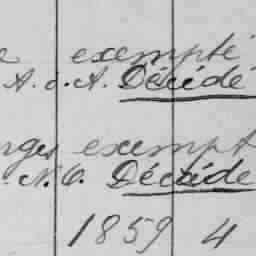 exempté
A. d. A. Décédé
rges exempt
N. O. Décéde
1859 4